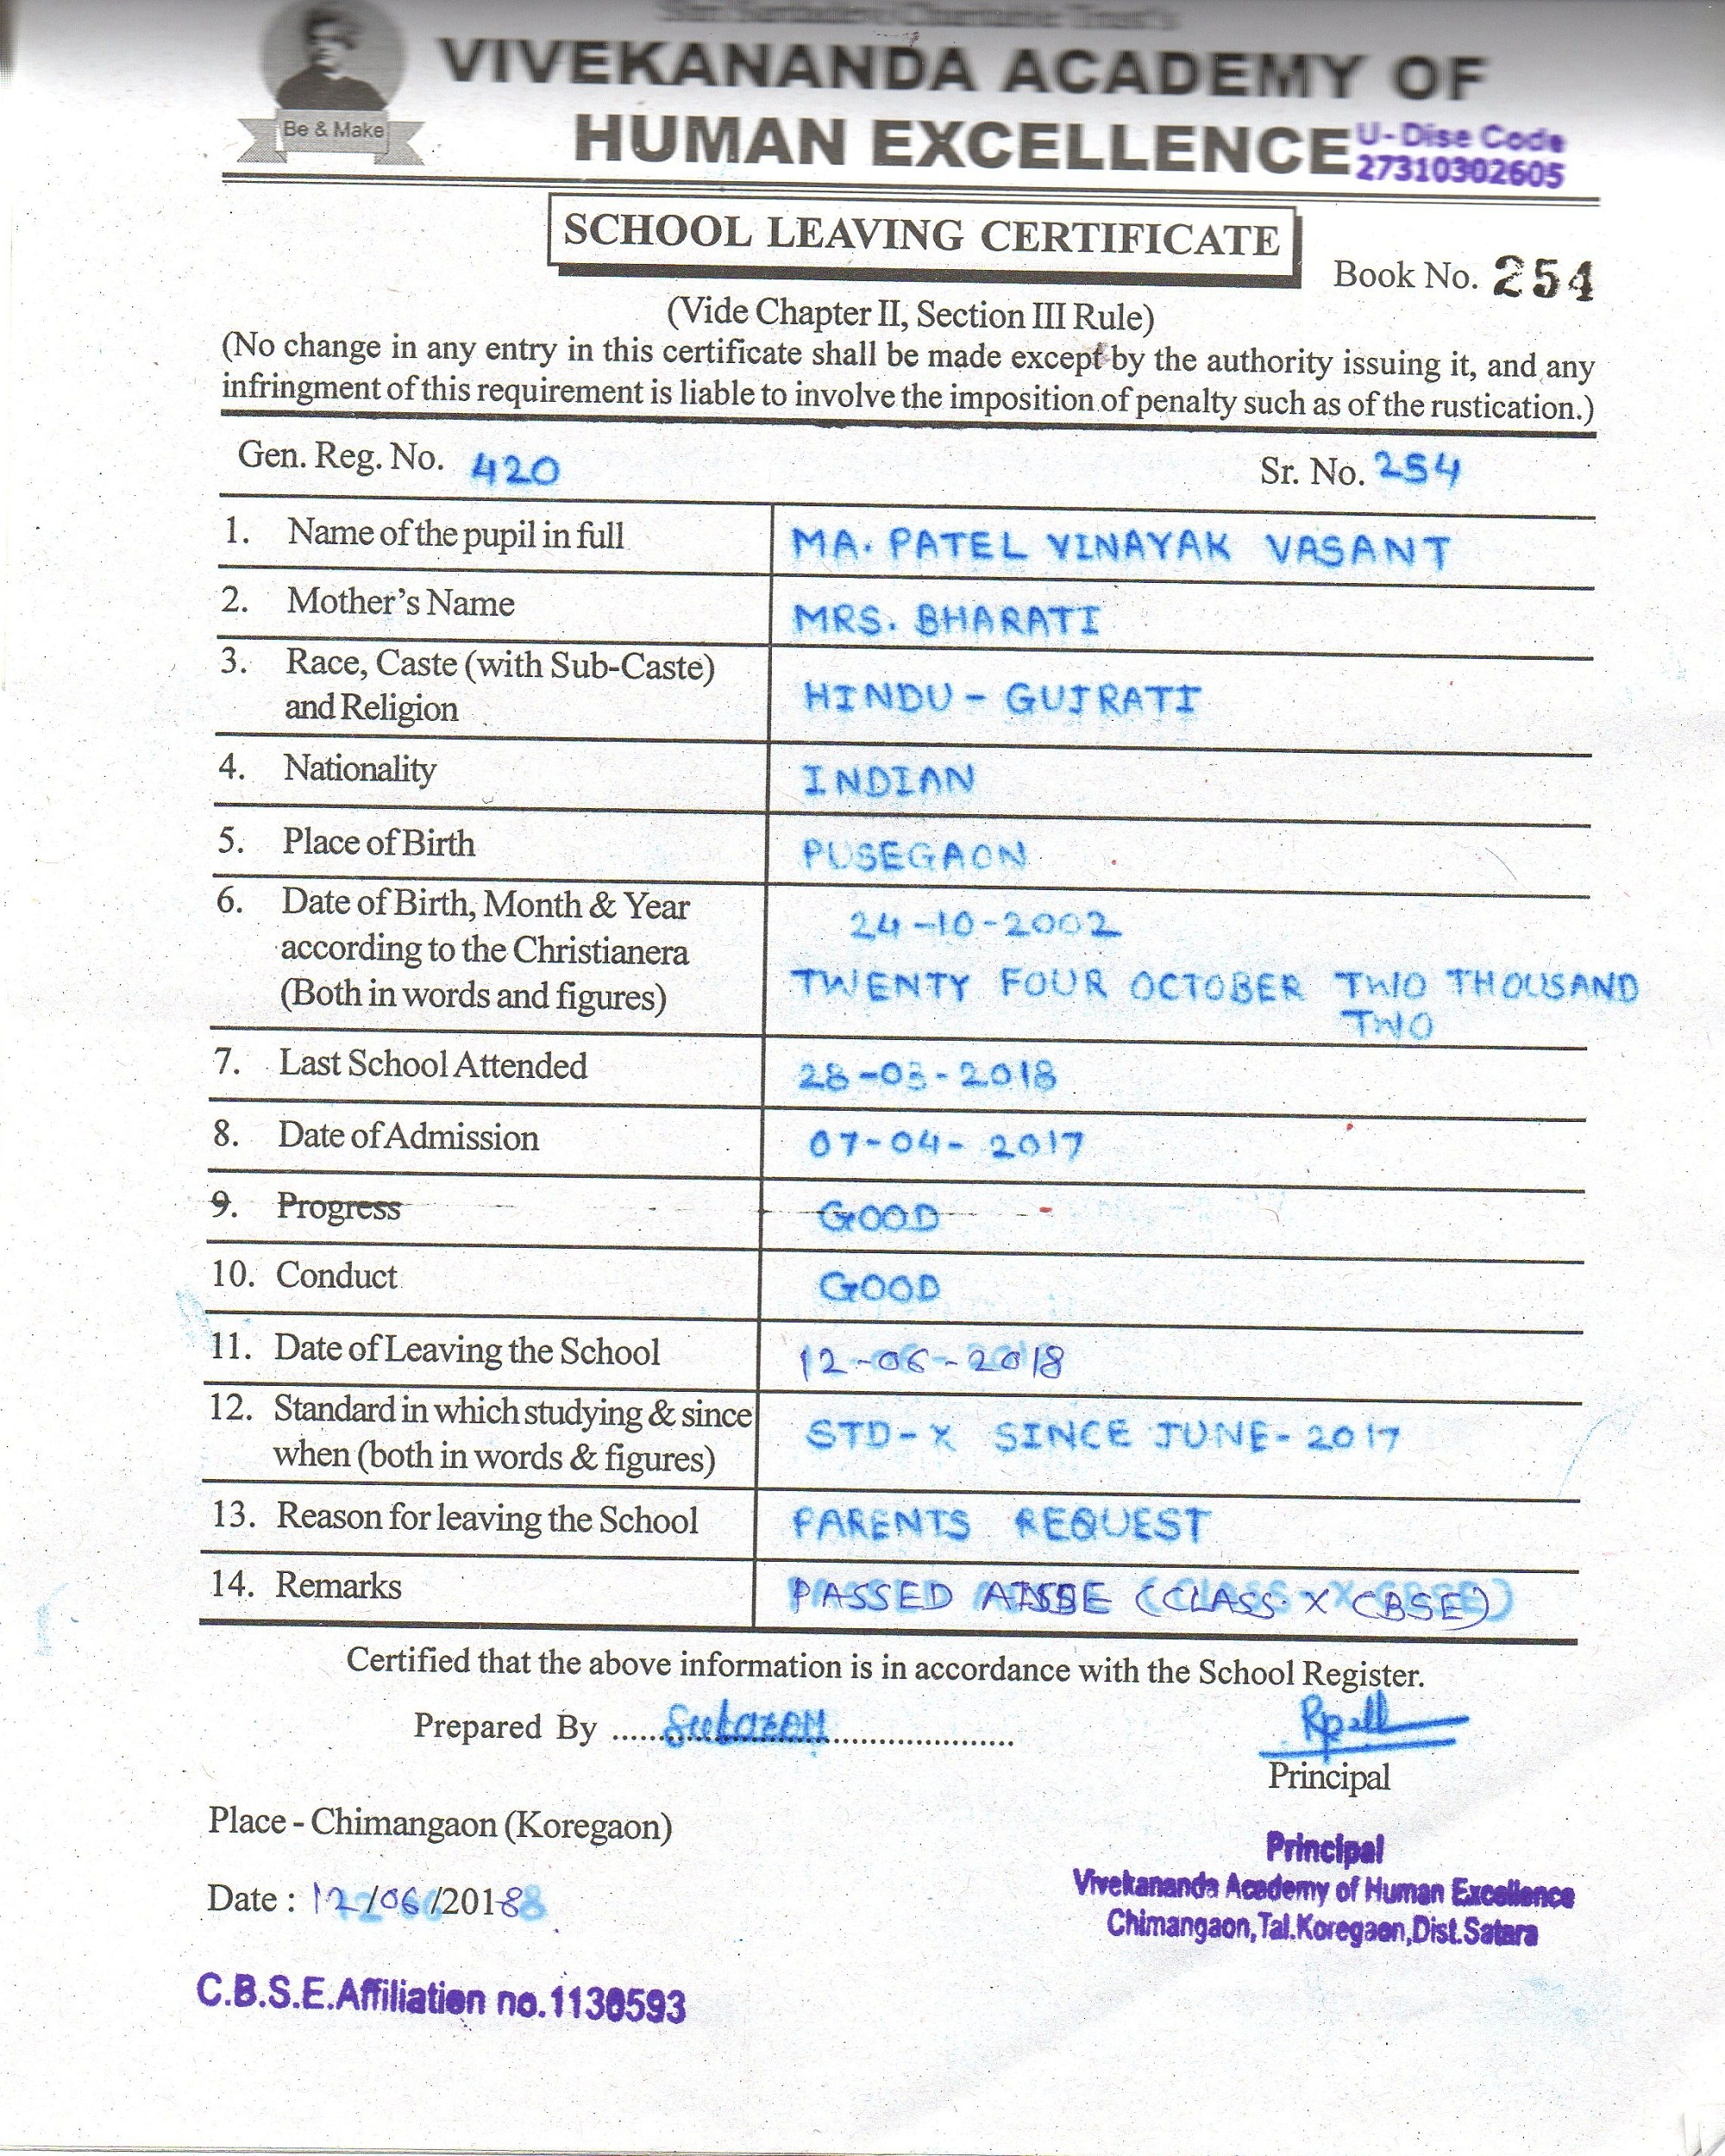 Charitable Trust's
VIVEKANANDA ACADEMY OF
HUMAN EXCELLENCE
Be & Make
U-Dise Code
27310302605
SCHOOL LEAVING CERTIFICATE
Book No. 254
(Vide Chapter II, Section III Rule)
(No change in any entry in this certificate shall be made except by the authority issuing it, and any
infringment of this requirement is liable to involve the imposition of penalty such as of the rustication.)
Gen. Reg. No. 420 Sr. No. 254
1. Name of the pupil in full MA. PATEL VINAYAK VASANT
2. Mother's Name MRS. BHARATI
3. Race, Caste (with Sub-Caste)
and Religion HINDU - GUJRATI
4. Nationality INDIAN
5. Place of Birth PUSEGAON
6. Date of Birth, Month & Year 24-10-2002
according to the Christianera
(Both in words and figures) TWENTY FOUR OCTOBER TWO THOUSAND
TWO
7. Last School Attended 28-03-2018
8. Date of Admission 07-04-2017
9. Progress GOOD
10. Conduct GOOD
11. Date of Leaving the School 12-06-2018
12. Standard in which studying & since STD-X SINCE JUNE-2017
when (both in words & figures)
13. Reason for leaving the School PARENTS REQUEST
14. Remarks PASSED (CLASS X CBSE)
Certified that the above information is in accordance with the School Register.
Prepared By
Principal
Place - Chimangaon (Koregaon)
Principal
Vivekananda Academy of Human Excellence
Date : 12/06/2018
Chimangaon, Tal.Koregaon, Dist.Satara
C.B.S.E. Affiliation no.1130593